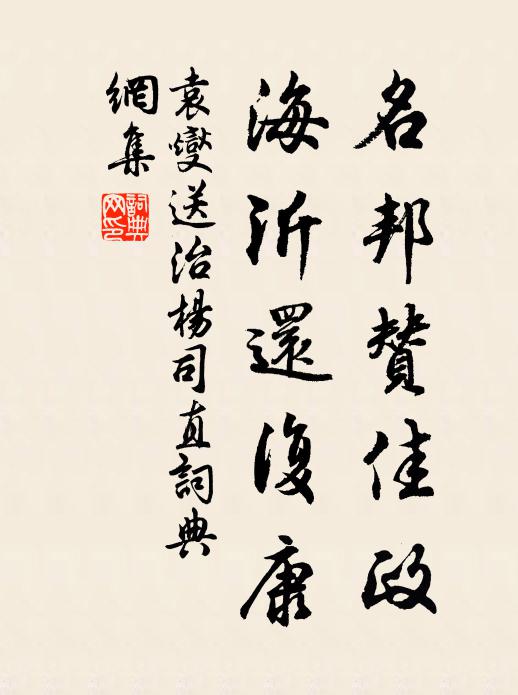 名邦贊佳政
海沂還復康
袁燮送治楊司直詞典
網集
詞典
网印